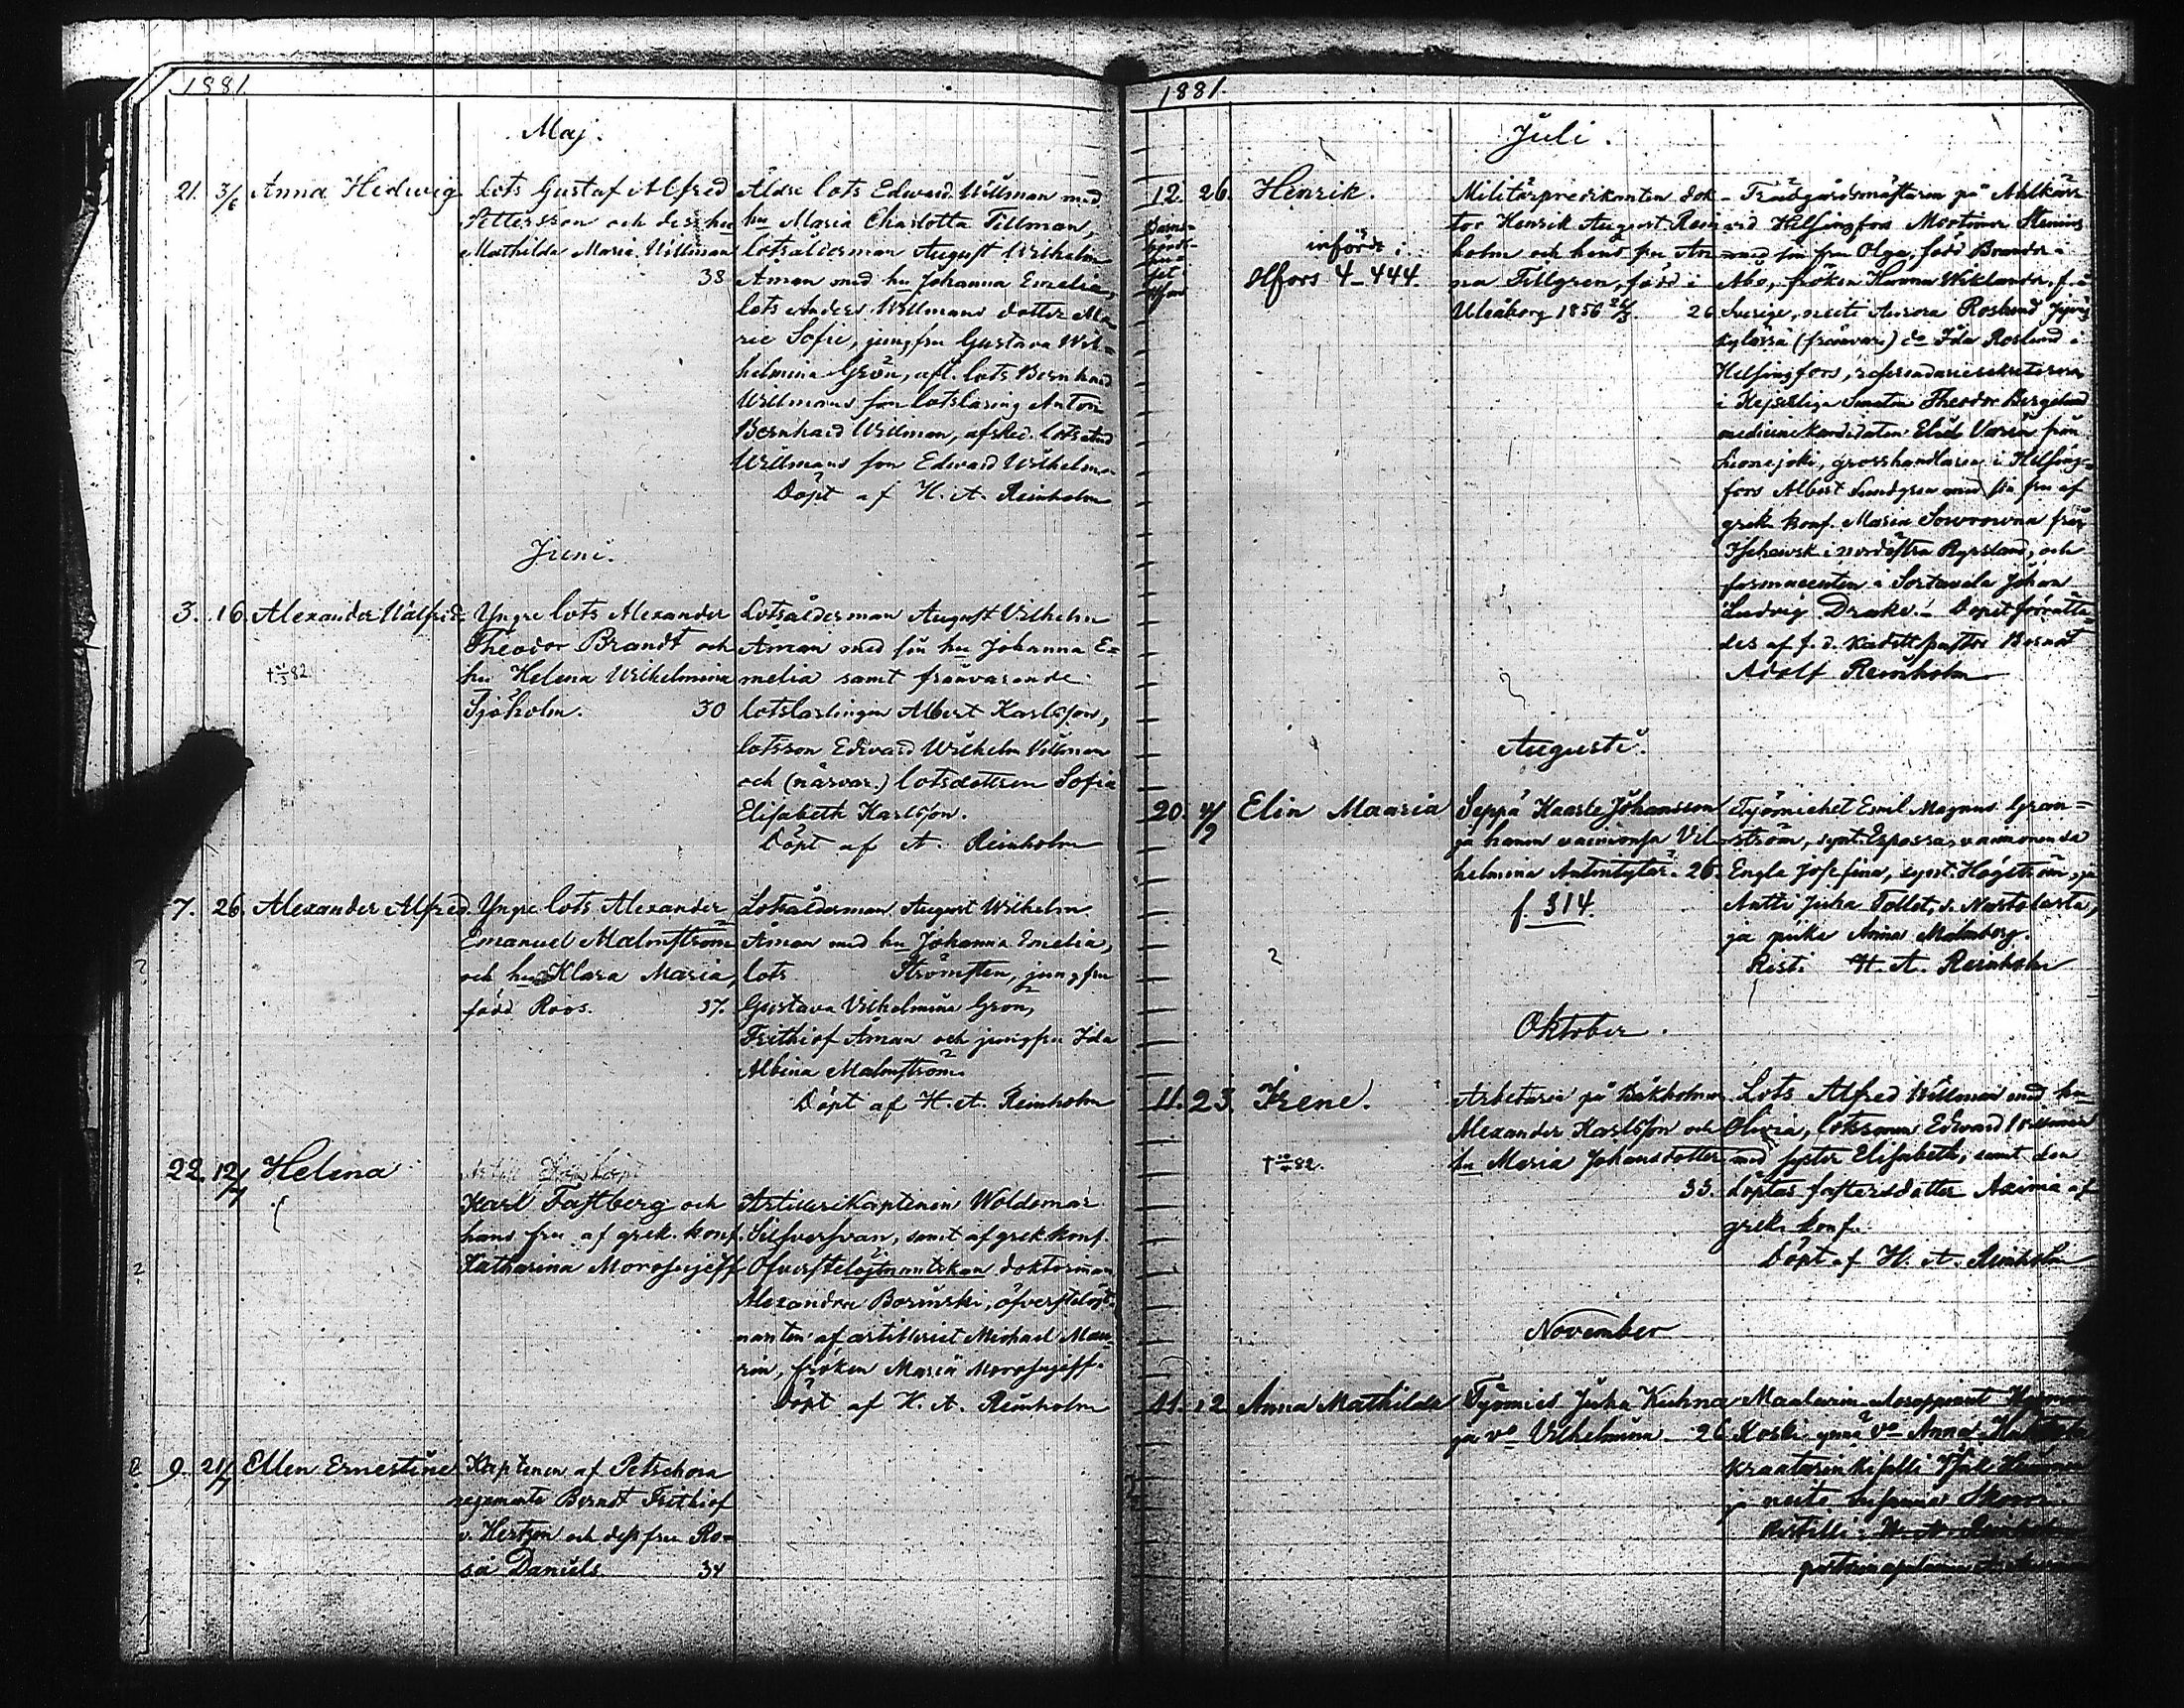 1881
Maj.
21. 3/6 Anna Hedwig
Lots Gustaf Alfred
Pettersson och dess hu
Mathilda Maria Willman
38
Äldre lots Edward Willman med
hu Maria Charlotta Tillman,
lotsålderman August Wilhelm
Åman med hu Johanna Emelia,
lots Anders Willmans dotter Ma
rie Sofie, jungfru Gustava Wil=
helmina Grön, afl. lots Bernhard
Willmans son lotslärling Anton
Bernhard Willman, afsked. lots
Willmans son Edward Wilhelm
Döpt af H. A. Reinholm
Juni.
3. 16. Alexander Walfrid
82
Yngre lots Alexander
Theodor Brandt och
hu Helena Wilhelmina
Sjöholm. 30
Lotsålderman August Vilhelm
Åman med sin hu Johanna E=
melia samt frånvarande
lotslärlingen Albert Karlsson,
lotsson Edward Wilhelm Willman
och (närvar.) lotsdottren Sofia
Elisabeth Karlsson.
Döpt af A. Reinholm
7. 26. Alexander Alfred.
Yngre lots Alexander
Emanuel Malmström
och hu Klara Maria,
född Roos. 37.
Lotsålderman August Wilhelm
Åman med hu Johanna Emelia,
lots Strömsten, jungfru
Gustava Vilhelmina Grön,
Frithiof Åman och jungfru Ida
Albina Malmström
Döpt af H. A. Reinholm
22. 12/7 Helena
Karl Fastberg och
hans fru af grek. konf.
Katharina Morosejeff
Artillerikaptenen Woldemar
Silfversvan, samt af grek konf.
Öfverstelöjtnantskan doktorinnan
Alexandra Borinski, öfverstelöjt=
nanten af artilleriet Michael Mau
rin, fröken Maria Morosejeff.
Döpt af H. A. Reinholm
9. 21/7 Ellen Ernestine
Kaptenen af Petschora
regemente Berndt Frithiof
v. Hertzen och dess fru Ro=
sa Daniels 34
1881.
Juli.
12. 26. Henrik.
införd i
Hfors 4-444.
Militärpredikanten dok-
tor Henrik August Rein
holm och hans fru An
na Tillgren, född i
Uleåborg 1856 26
Trädgårdsmästaren på
vid Helsingfors Mortimer Stenius
med sin fru Olga, född Brander i
Åbo, fröken Hanna Wiklander, f. i
Sverige, neiti Aurora Roslund
kylässä (frånvar.) do Ida Roslund i
Helsingfors, referendariesekreteraren
i Kejserliga Senaten Theodor Bergelund
medicinekandidaten Elis från
joki, grosshandlaren i Helsing=
fors Albert Sundgren med sin fru af
grek. konf. Maria från
i nordöstra Ryssland, och
farmaceuten i Sortavala Johan
Ludvig Drake. - Dopet förrätta=
des af f. d. kadettpastor Berndt
Adolf Reinholm
Augusti.
20. 4/9 Elin Maaria
Seppä Kaarle Johansson
ja hänen vaimonsa Vil
helmina Antintytär. 26.
f. 314.
Työmiehet Emil Magnus Gran=
ström, synt. Espossa, vaimonensa
Engla Josefina, synt. Högström, ja
Antti Juha Tallet, s. Nastolasta,
ja piika Anna Malmberg.
Risti H. A. Reinholm
Oktober.
11. 23. Irene.
82.
Arbetaren på Bäkholmen
Alexander Karlsson och
hu Maria Johansdotter
33.
Lots Alfred Willman med hu
Olivia, lotsonen Edward Willman
med syster Elisabeth, samt den
döptas fastersdotter Axima af
grek. konf.
Döpt af H. A. Reinholm
November
11. 12 Anna Mathilda
Työmies Juha Kuhna
ja vo Vilhelmina 26
Maalarin
Koski ynnä vo Anna
ja neito Susanna
Ristitti: H. A. Reinholm